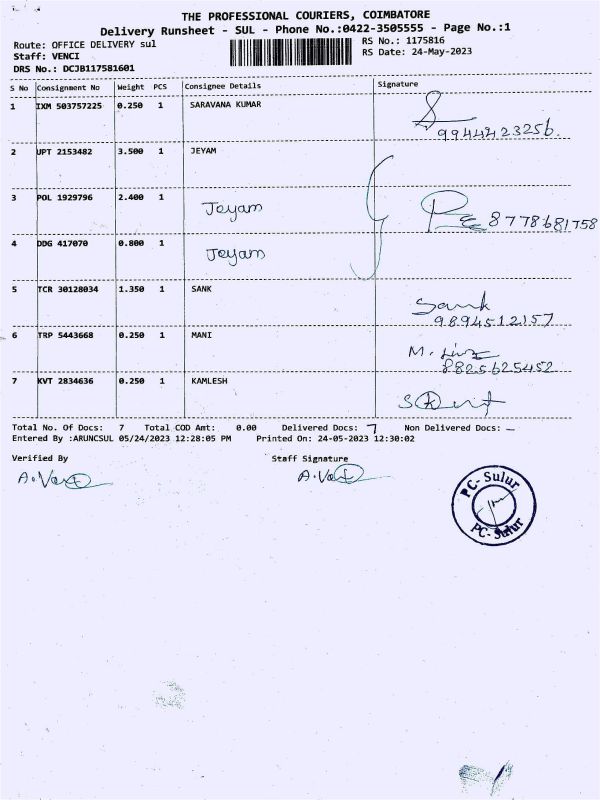 THE PROFESSIONAL COURIERS, COIMBATORE
Delivery Runsheet - SUL - Phone No.:0422-3505555 - Page No.:1
Route: OFFICE DELIVERY sul
RS No.: 1175816
Staff: VENCI
RS Date: 24-May-2023
DRS No.: DCJB117581601
S No Consignment No Weight PCS Consignee Details Signature
1 IXM 503757225 0.250 1 SARAVANA KUMAR
9944423256
2 UPT 2153482 3.500 1 JEYAM
3 POL 1929796 2.400 1 Jeyam
8778681758
4 DDG 417070 0.800 1 Jeyam
5 TCR 30128034 1.350 1 SANK Sank
9894512157
6 TRP 5443668 0.250 1 MANI
8825625452
7 KVT 2834636 0.250 1 KAMLESH
Total No. Of Docs: 7 Total COD Amt: 0.00 Delivered Docs: 7 Non Delivered Docs: —
Entered By :ARUNCSUL 05/24/2023 12:28:05 PM Printed On: 24-05-2023 12:30:02
Verified By Staff Signature
PC- Sulur
PC- Sulur